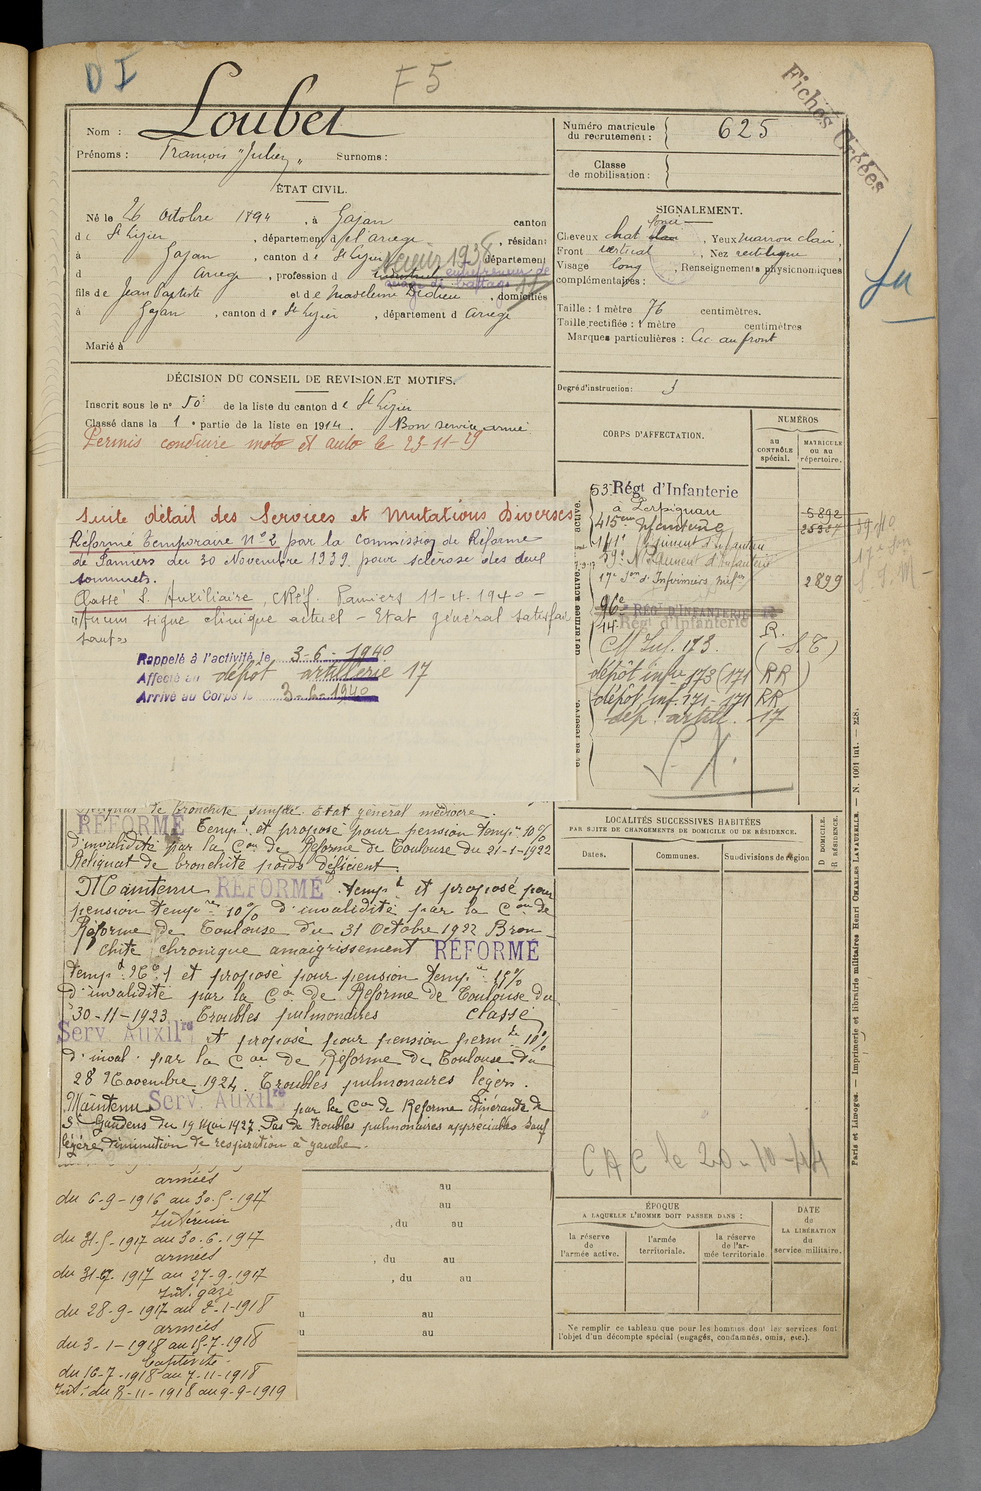 D I
F 5
Fiches Créées
Nom : Loubet
Prénoms : François "Julien" Surnoms :
ÉTAT CIVIL.
Né le 26 Octobre 1894, à Gajan canton
de St Lizier, département de l'Ariège, résidant
à Gajan, canton de St Lizier département
d Ariège, profession d entrepreneur de
battage
fils de Jean Baptiste et de Madeleine Dedieu, domiciliés
à Gajan, canton de St Lizier, département d Ariège
Marié à
DÉCISION DU CONSEIL DE REVISION ET MOTIFS.
Inscrit sous le n° 50 de la liste du canton de St Lizier
Classé dans la 1e partie de la liste en 1914. Bon service armé
Permis conduire moto et auto le 23-11-29
Suite détail des Services et Mutations Diverses
Réformé Temporaire N° 2 par la Commission de Réforme
de Pamiers du 30 Novembre 1939 pour sclérose des deux
sommets.
Classé S. Auxiliaire, CRéf. Pamiers 11-4-1940 -
"Aucun signe clinique actuel - Etat général satisfai
sant"
Rappelé à l'activité le 3-6-1940
Affecté au dépôt artillerie 17
Arrivé au Corps le 3-6-1940
Reliquat de bronchite simple. Etat général médiocre.
RÉFORMÉ Tempre et proposé pour pension tempre 10%
d'invalidité par la Con de Réforme de Toulouse du 21-1-1922
Reliquat de bronchite poids déficient
Maintenu RÉFORMÉ tempre et proposé pour
pension tempre 10% d'invalidité par la Con de
Réforme de Toulouse du 31 Octobre 1922 Bron-
chite chronique amaigrissement RÉFORMÉ
temp N° 1 et proposé pour pension temp 15%
d'invalidité par la Con de Réforme de Toulouse du
30-11-1923 Troubles pulmonaires classé
Serv. Auxilre et proposé pour pension perm 10%
d'inval. par la Con de Réforme de Toulouse du
28 Novembre 1924. Troubles pulmonaires légers.
Maintenu Serv. Auxilre par la Con de Réforme itinérante de
St Gaudens du 19 Mai 1927. Pas de troubles pulmonaires appréciables sauf
légère diminution de respiration à gauche.
armées
du 6-9-1916 au 30-5-1917
Intérieur
du 31-5-1917 au 30-6-1917
armées
du 31-7-1917 au 27-9-1917
Int. gazé
du 28-9-1917 au 2-1-1918
armées
du 3-1-1918 au 15-7-1918
Captivité
du 16-7-1918 au 7-11-1918
Int. du 8-11-1918 au 9-9-1919
au
au
, du au
, du au
, du au
au
au
Numéro matricule
du recrutement : 625
Classe
de mobilisation :
SIGNALEMENT.
Cheveux chat foncé, Yeux marron clair,
Front vertical, Nez rectiligne,
Visage long, Renseignements physionomiques
complémentaires :
Taille : 1 mètre 76 centimètres.
Taille rectifiée : 1 mètre centimètres
Marques particulières : Cic au front
Degré d'instruction : 3
CORPS D'AFFECTATION.
NUMÉROS
au
CONTRÔLE
spécial.
MATRICULE
ou au
répertoire.
53 Régt d'Infanterie
à Perpignan 5892
415eme Infanterie
141e Régiment d'Infanterie
17e Son d'Infirmiers mil 2899
96e RÉGt D'INFANTERIE
14 Régt d'Infanterie R.
CM Inf. 173 (S. T)
dépôt infie 173 (171) RR
dépôt inf. 171 - 171 RR
dép. artill. 17
LOCALITÉS SUCCESSIVES HABITÉES
PAR SUITE DE CHANGEMENTS DE DOMICILE OU DE RÉSIDENCE.
Dates.
Communes.
Subdivisions de région
D DOMICILE.
R RÉSIDENCE.
CAC le 20-10-44
ÉPOQUE
A LAQUELLE L'HOMME DOIT PASSER DANS :
la réserve
de
l'armée active.
l'armée
territoriale.
la réserve
de l'ar-
mée territoriale
DATE
de
LA LIBÉRATION
du
service militaire.
Ne remplir ce tableau que pour les hommes dont les services font
l'objet d'un décompte spécial (engagés, condamnés, omis, etc.).
Paris et Limoges. — Imprimerie et librairie militaires Henri CHARLES LAVAUZELLE. — N. 1001 int. — 228.